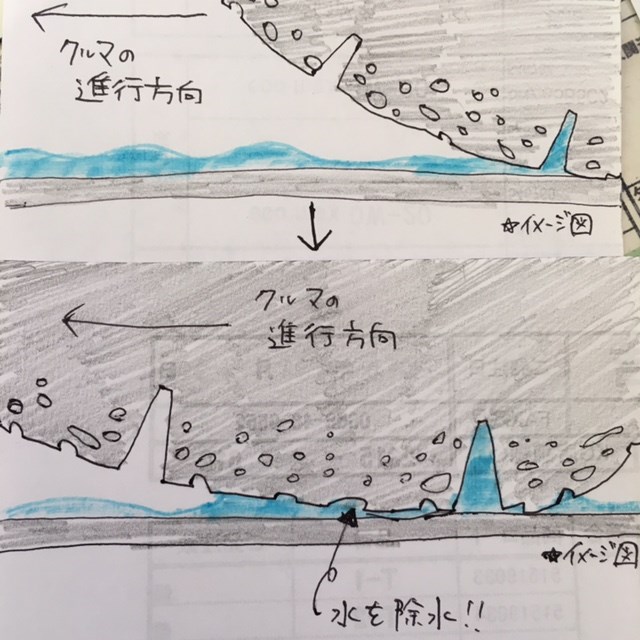 クルマの
進行方向
☆イメージ図
クルマの
進行方向
☆イメージ図
水を除水!!